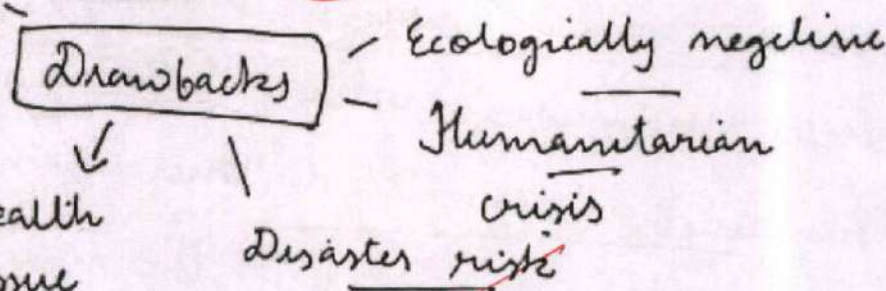 Drawbacks
Ecologically negative
Humanitarian
crisis
ealth
ssue
Disaster risk